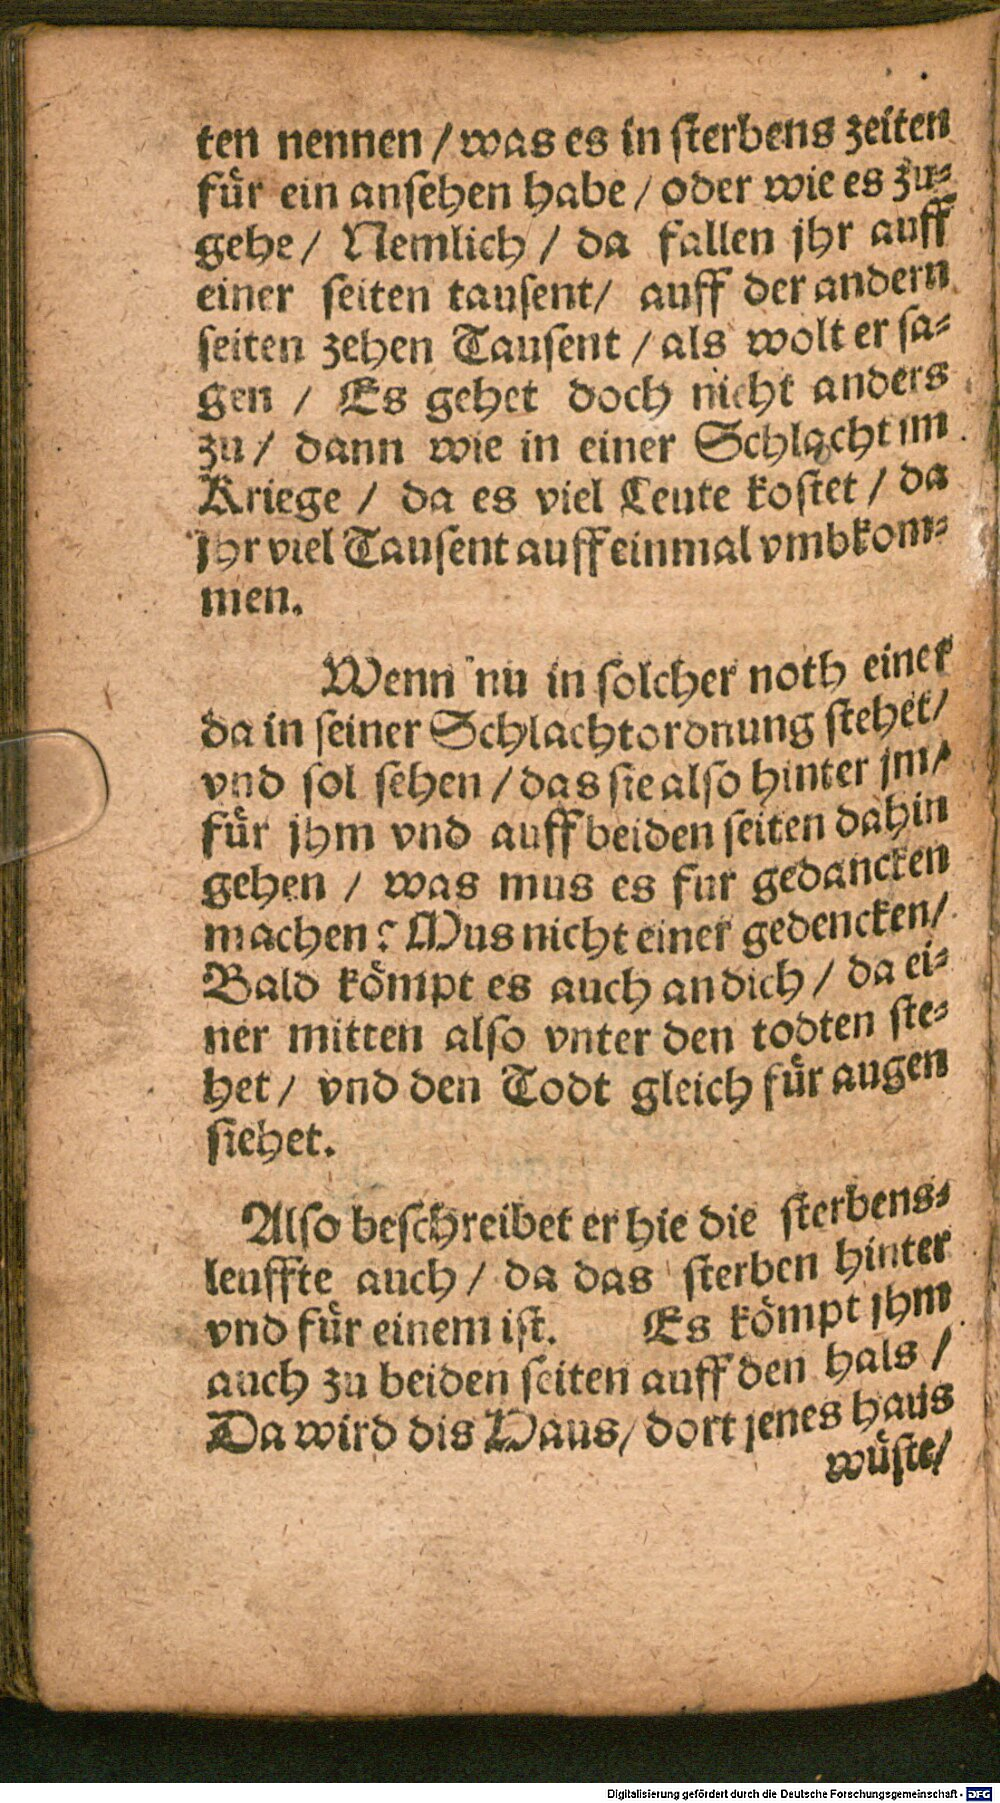 ten nennen / was es in sterbens zeiten
für ein ansehen habe / oder wie es zu-
gehe / Nemlich / da fallen jhr auff
einer seiten tausent / auff der andern
seiten zehen Tausent / als wolt er sa-
gen / Es gehet doch nicht anders
zu / dann wie in einer Schlacht im
Kriege / da es viel Leute kostet / da
jhr viel Tausent auff einmal vmbkom-
men.
Wenn nu in solcher noth einer
da in seiner Schlachtordnung stehet /
vnd sol sehen / das sie also hinter jm /
für jhm vnd auff beiden seiten dahin
gehen / was mus es fur gedancken
machen? Mus nicht einer gedencken /
Bald kömpt es auch an dich / da ei-
ner mitten also vnter den todten ste-
het / vnd den Todt gleich für augen
siehet.
Also beschreibet er hie die sterbens-
leuffte auch / da das sterben hinter
vnd für einem ist. Es kömpt jhm
auch zu beiden seiten auff den hals /
Da wird dis Haus / dort jenes haus
wüste /
Digitalisierung gefördert durch die Deutsche Forschungsgemeinschaft - DFG